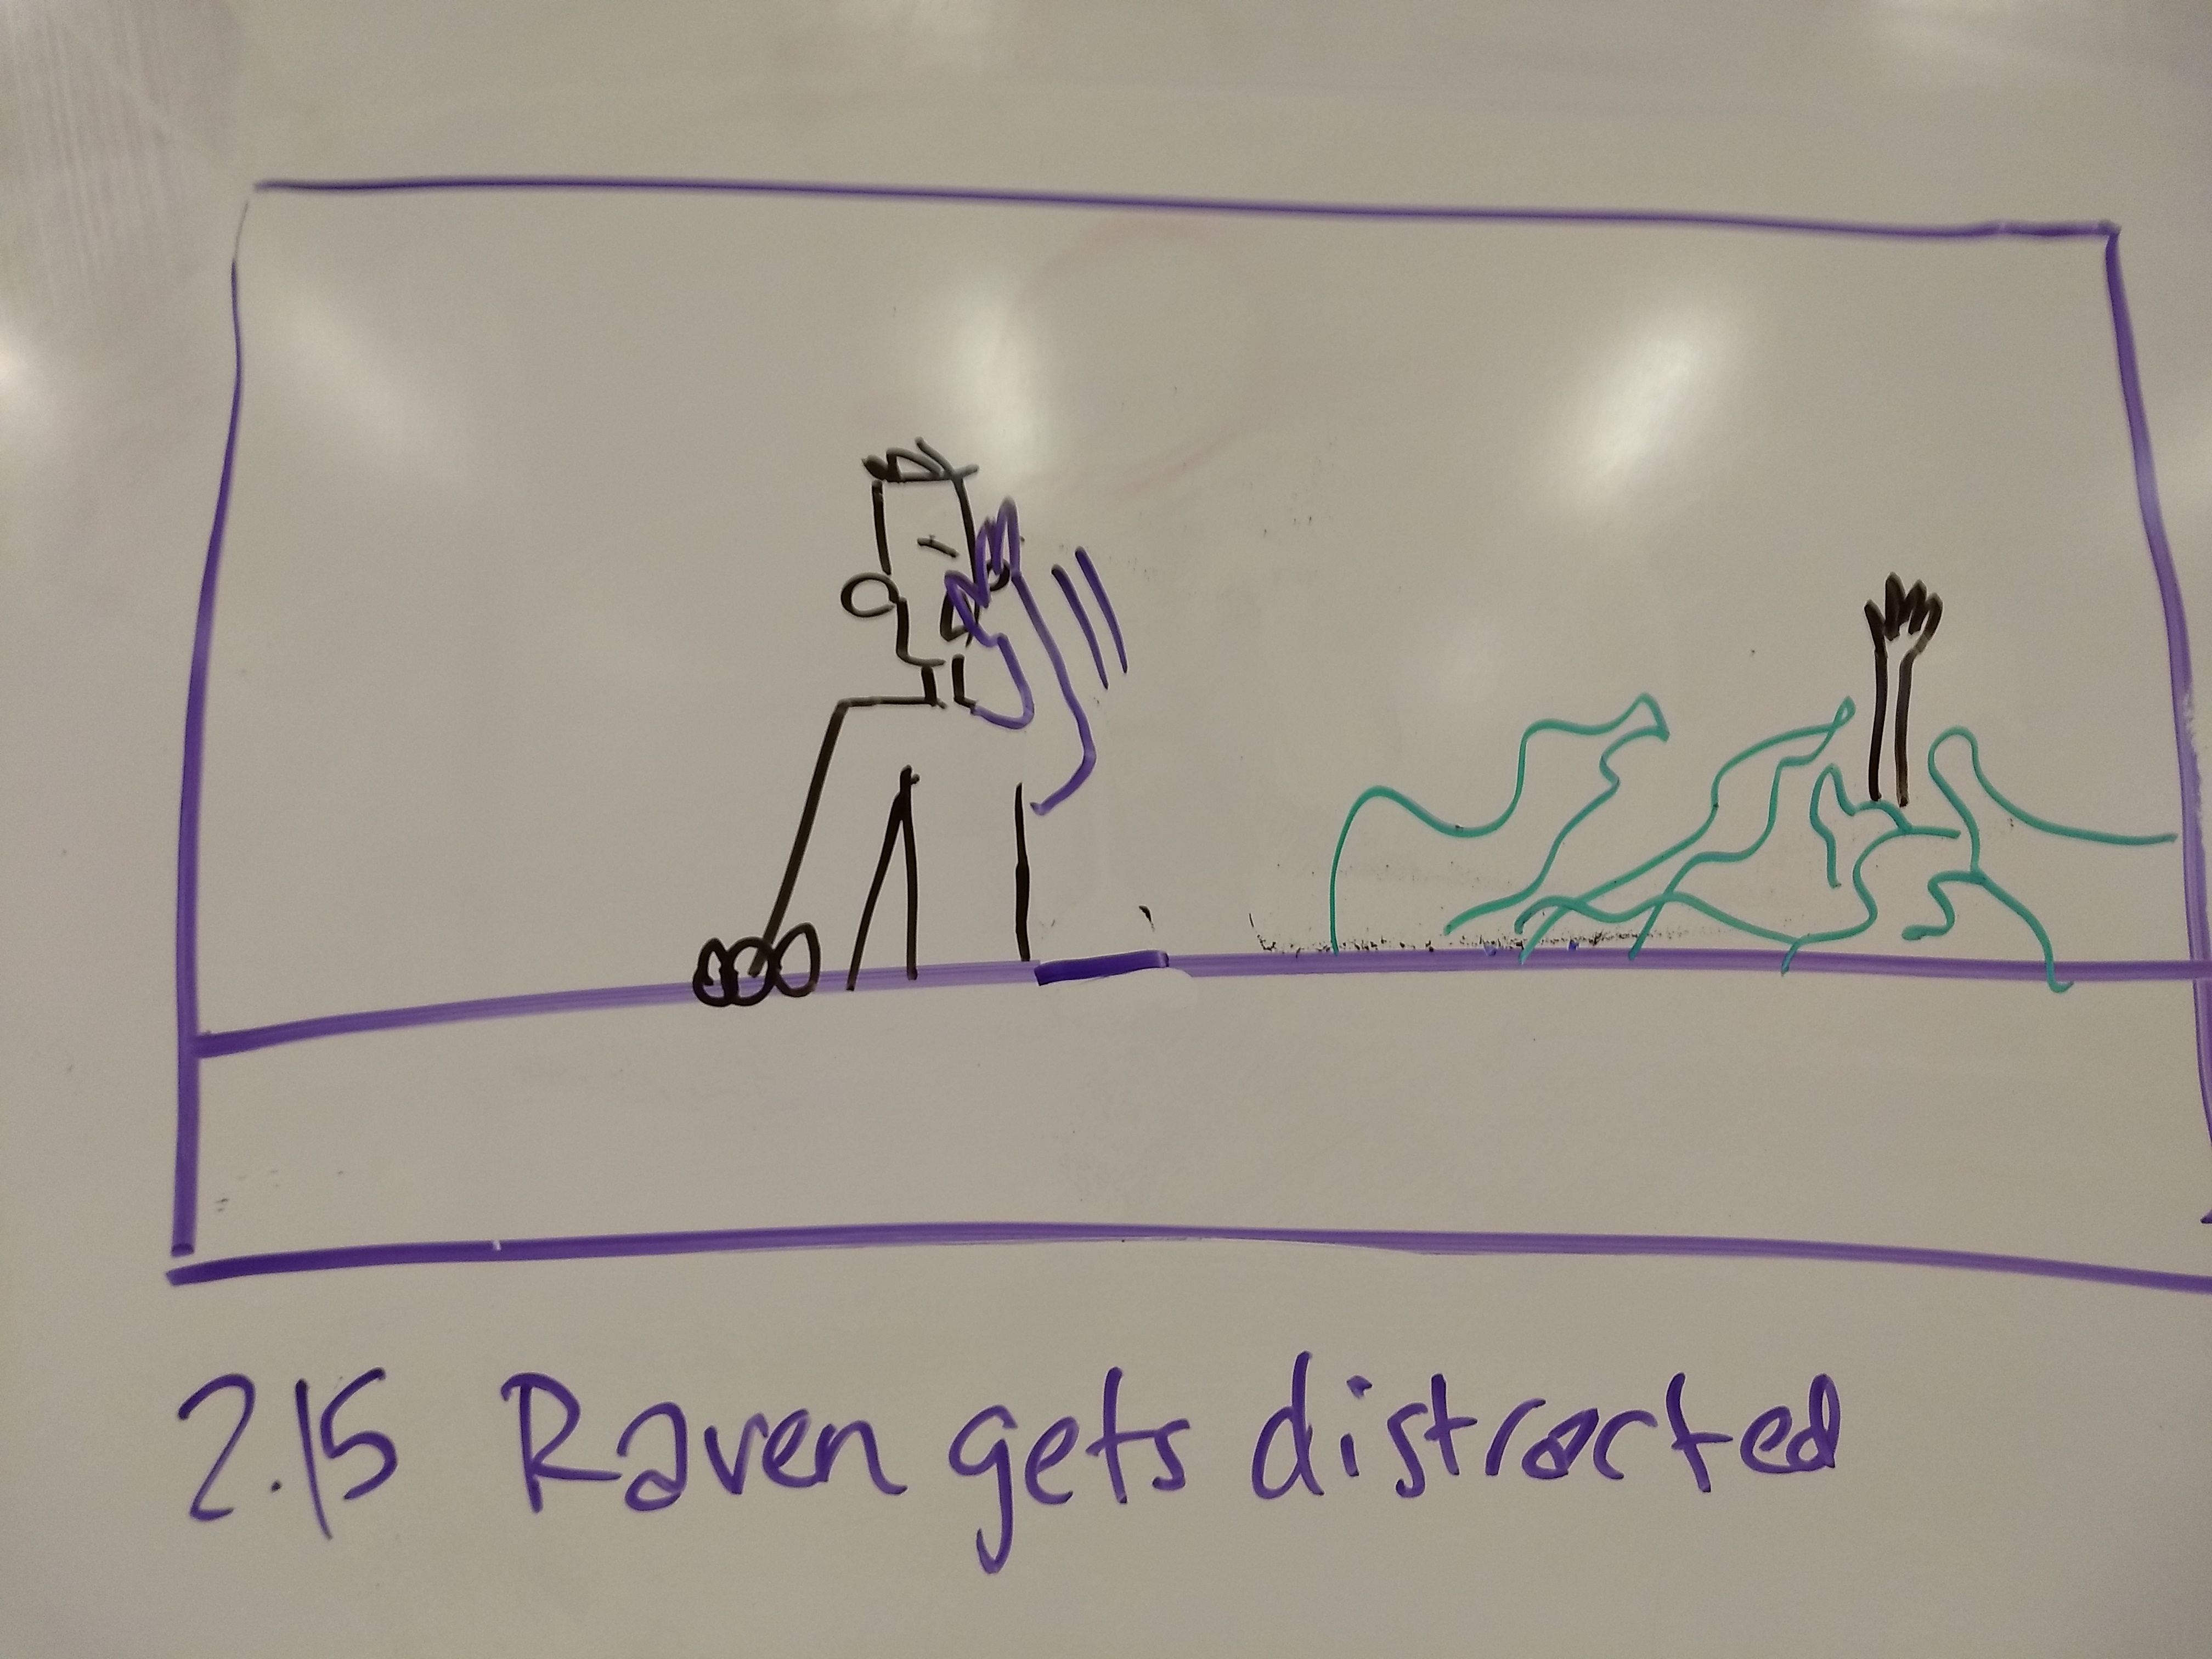 2.15 Raven gets distracted